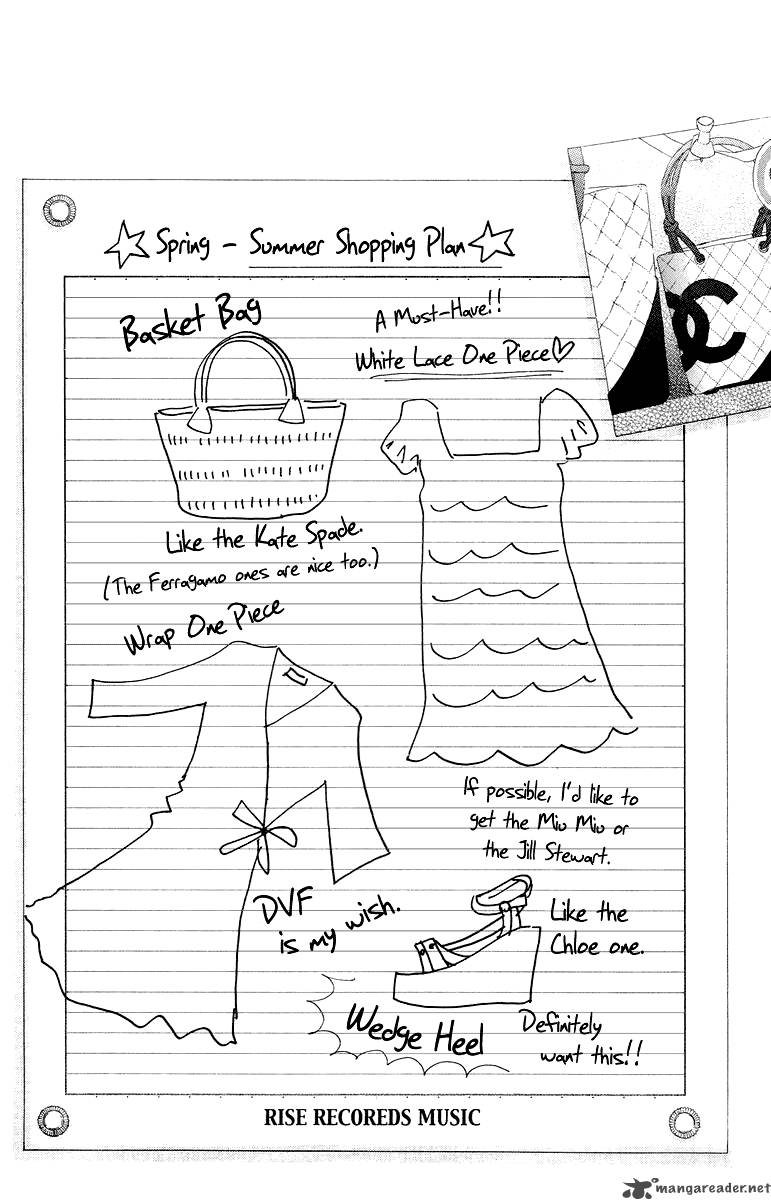 ☆ Spring - Summer Shopping Plan ☆
Basket Bag
A Must-Have!!
White Lace One Piece♡
Like the Kate Spade.
(The Ferragamo ones are nice too.)
Wrap One Piece
If possible, I'd like to
get the Miu Miu or
the Jill Stewart.
DVF
is my wish.
Like the
Chloe one.
Wedge Heel
Definitely
want this!!
RISE RECOREDS MUSIC
mangareader.net